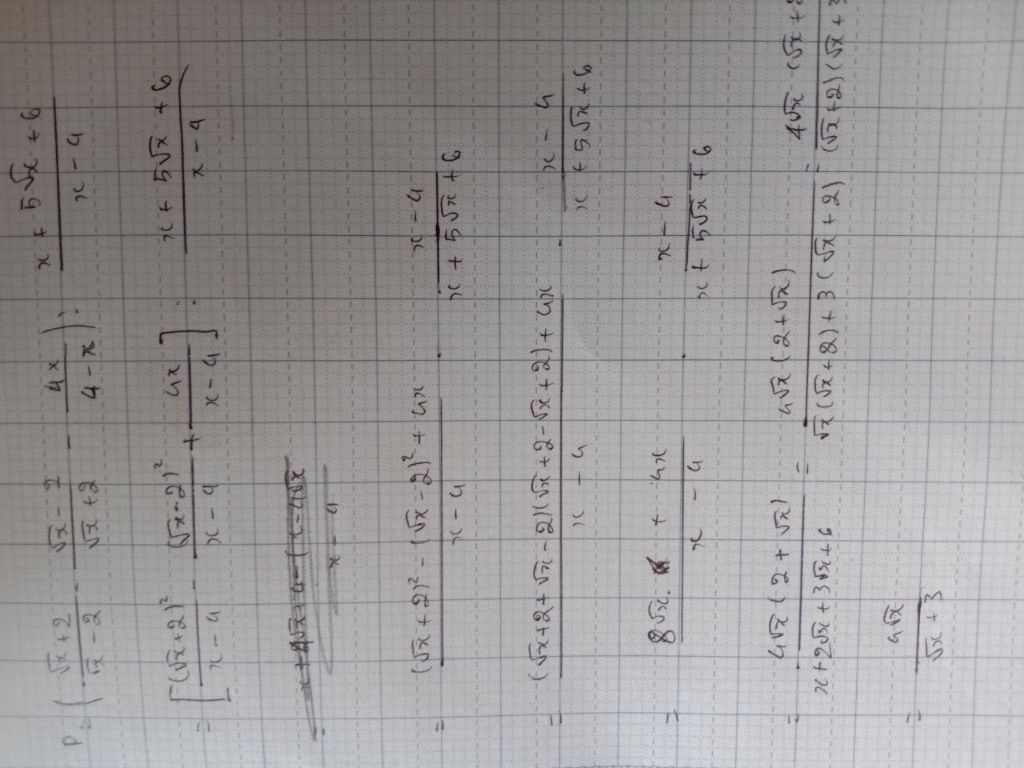 P = ( (√x + 2)/(√x - 2) - (√x - 2)/(√x + 2) - 4x/(4 - x) ) : (x + 5√x + 6)/(x - 4)
= [ (√x + 2)²/(x - 4) - (√x - 2)²/(x - 4) + 4x/(x - 4) ] : (x + 5√x + 6)/(x - 4)
= ((√x + 2)² - (√x - 2)² + 4x)/(x - 4) . (x - 4)/(x + 5√x + 6)
= ((√x + 2 + √x - 2)(√x + 2 - √x + 2) + 4x)/(x - 4) . (x - 4)/(x + 5√x + 6)
= (8√x. + 4x)/(x - 4) . (x - 4)/(x + 5√x + 6)
= 4√x (2 + √x)/(x + 2√x + 3√x + 6) = 4√x (2 + √x)/(√x (√x + 2) + 3 (√x + 2)) = 4√x (√x + 2/(√x + 2) (√x + 3
= 4√x/(√x + 3)